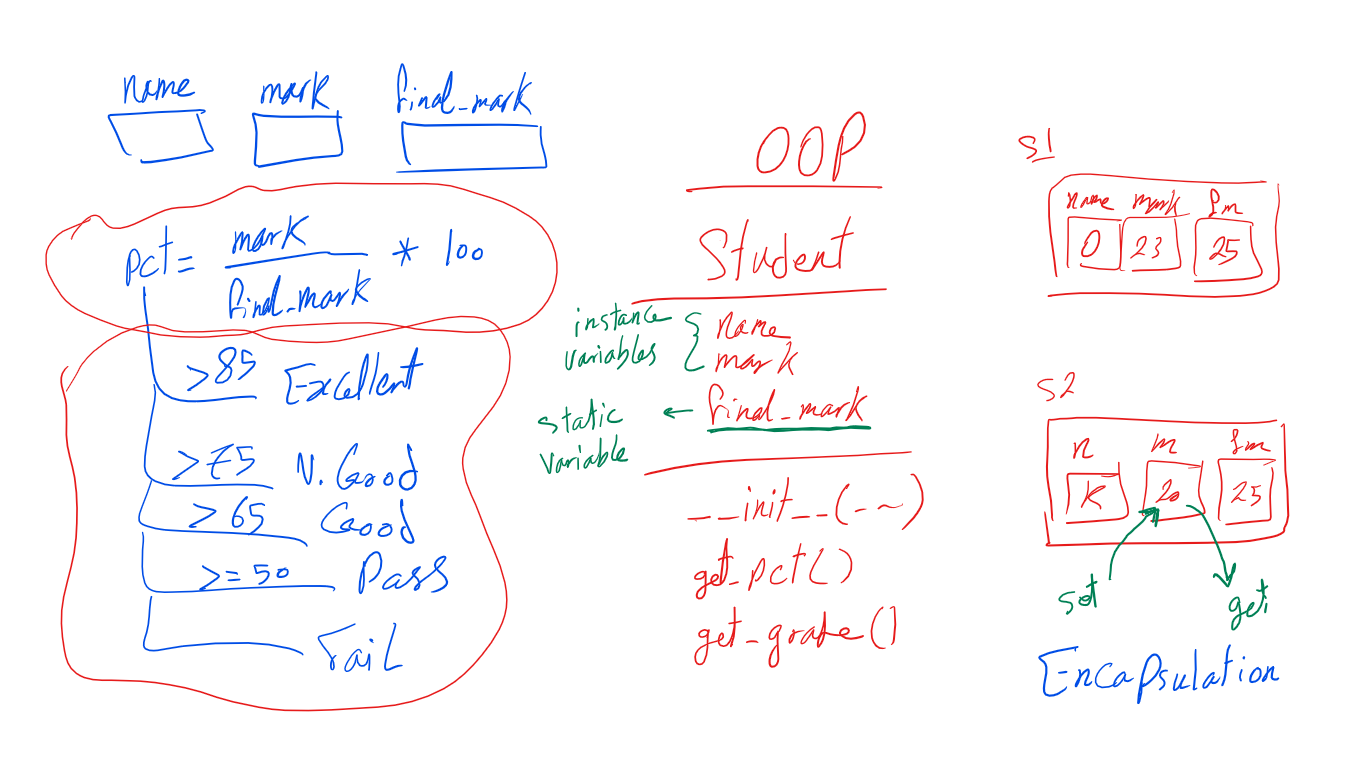 name mark final_mark
pct = mark / final_mark * 100
>85 Excellent
>75 V. Good
>65 Good
>=50 Pass
Fail
OOP
Student
instance variables { name
mark
static variable ← final_mark
__init__(-~)
get_pct()
get_grade()
S1
name mark fm
O 23 25
S2
n m fm
K 20 25
set get
Encapsulation